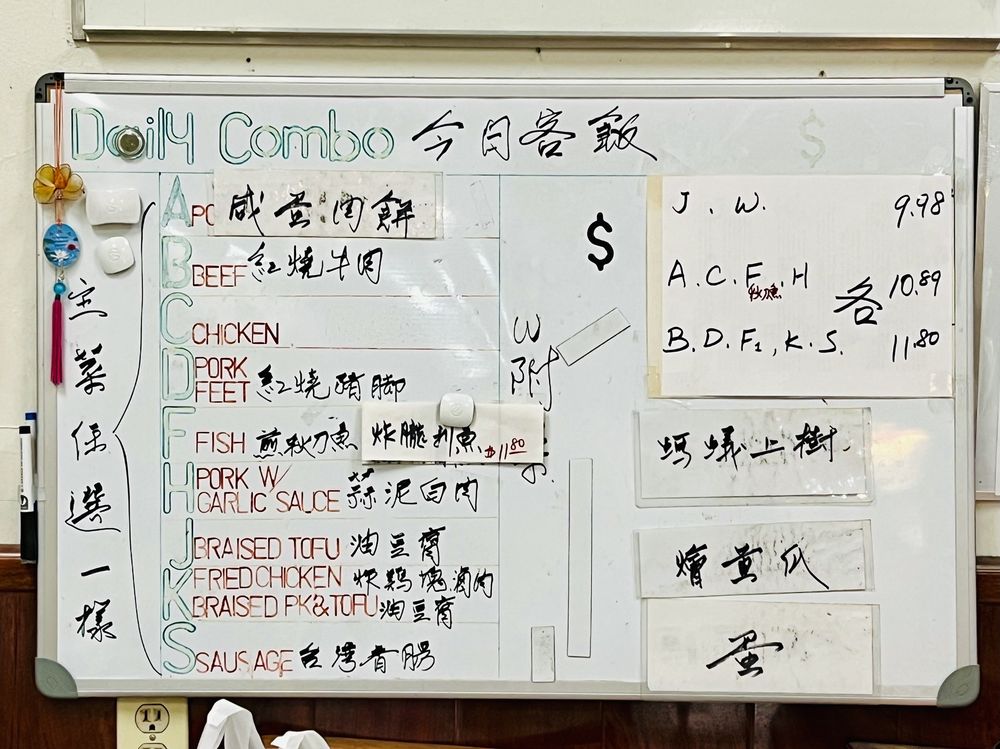 Daily Combo 今日客飯
$
主菜任選一樣
A PO 咸蛋肉餅
B BEEF 紅燒牛肉
C CHICKEN
D PORK FEET 紅燒豬脚
F FISH 煎秋刀魚 炸脆利魚 $11.80
H PORK W/ GARLIC SAUCE 蒜泥白肉
J BRAISED TOFU 油豆腐
K FRIED CHICKEN 炸鷄塊滷肉
BRAISED PK&TOFU 油豆腐
S SAUSAGE 台灣香腸
$
W/
附
J. W. 9.98
A. C. F. H 各 10.89
秋刀魚
B. D. F₂, K. S. 11.80
螞蟻上樹
燴黃瓜
蛋